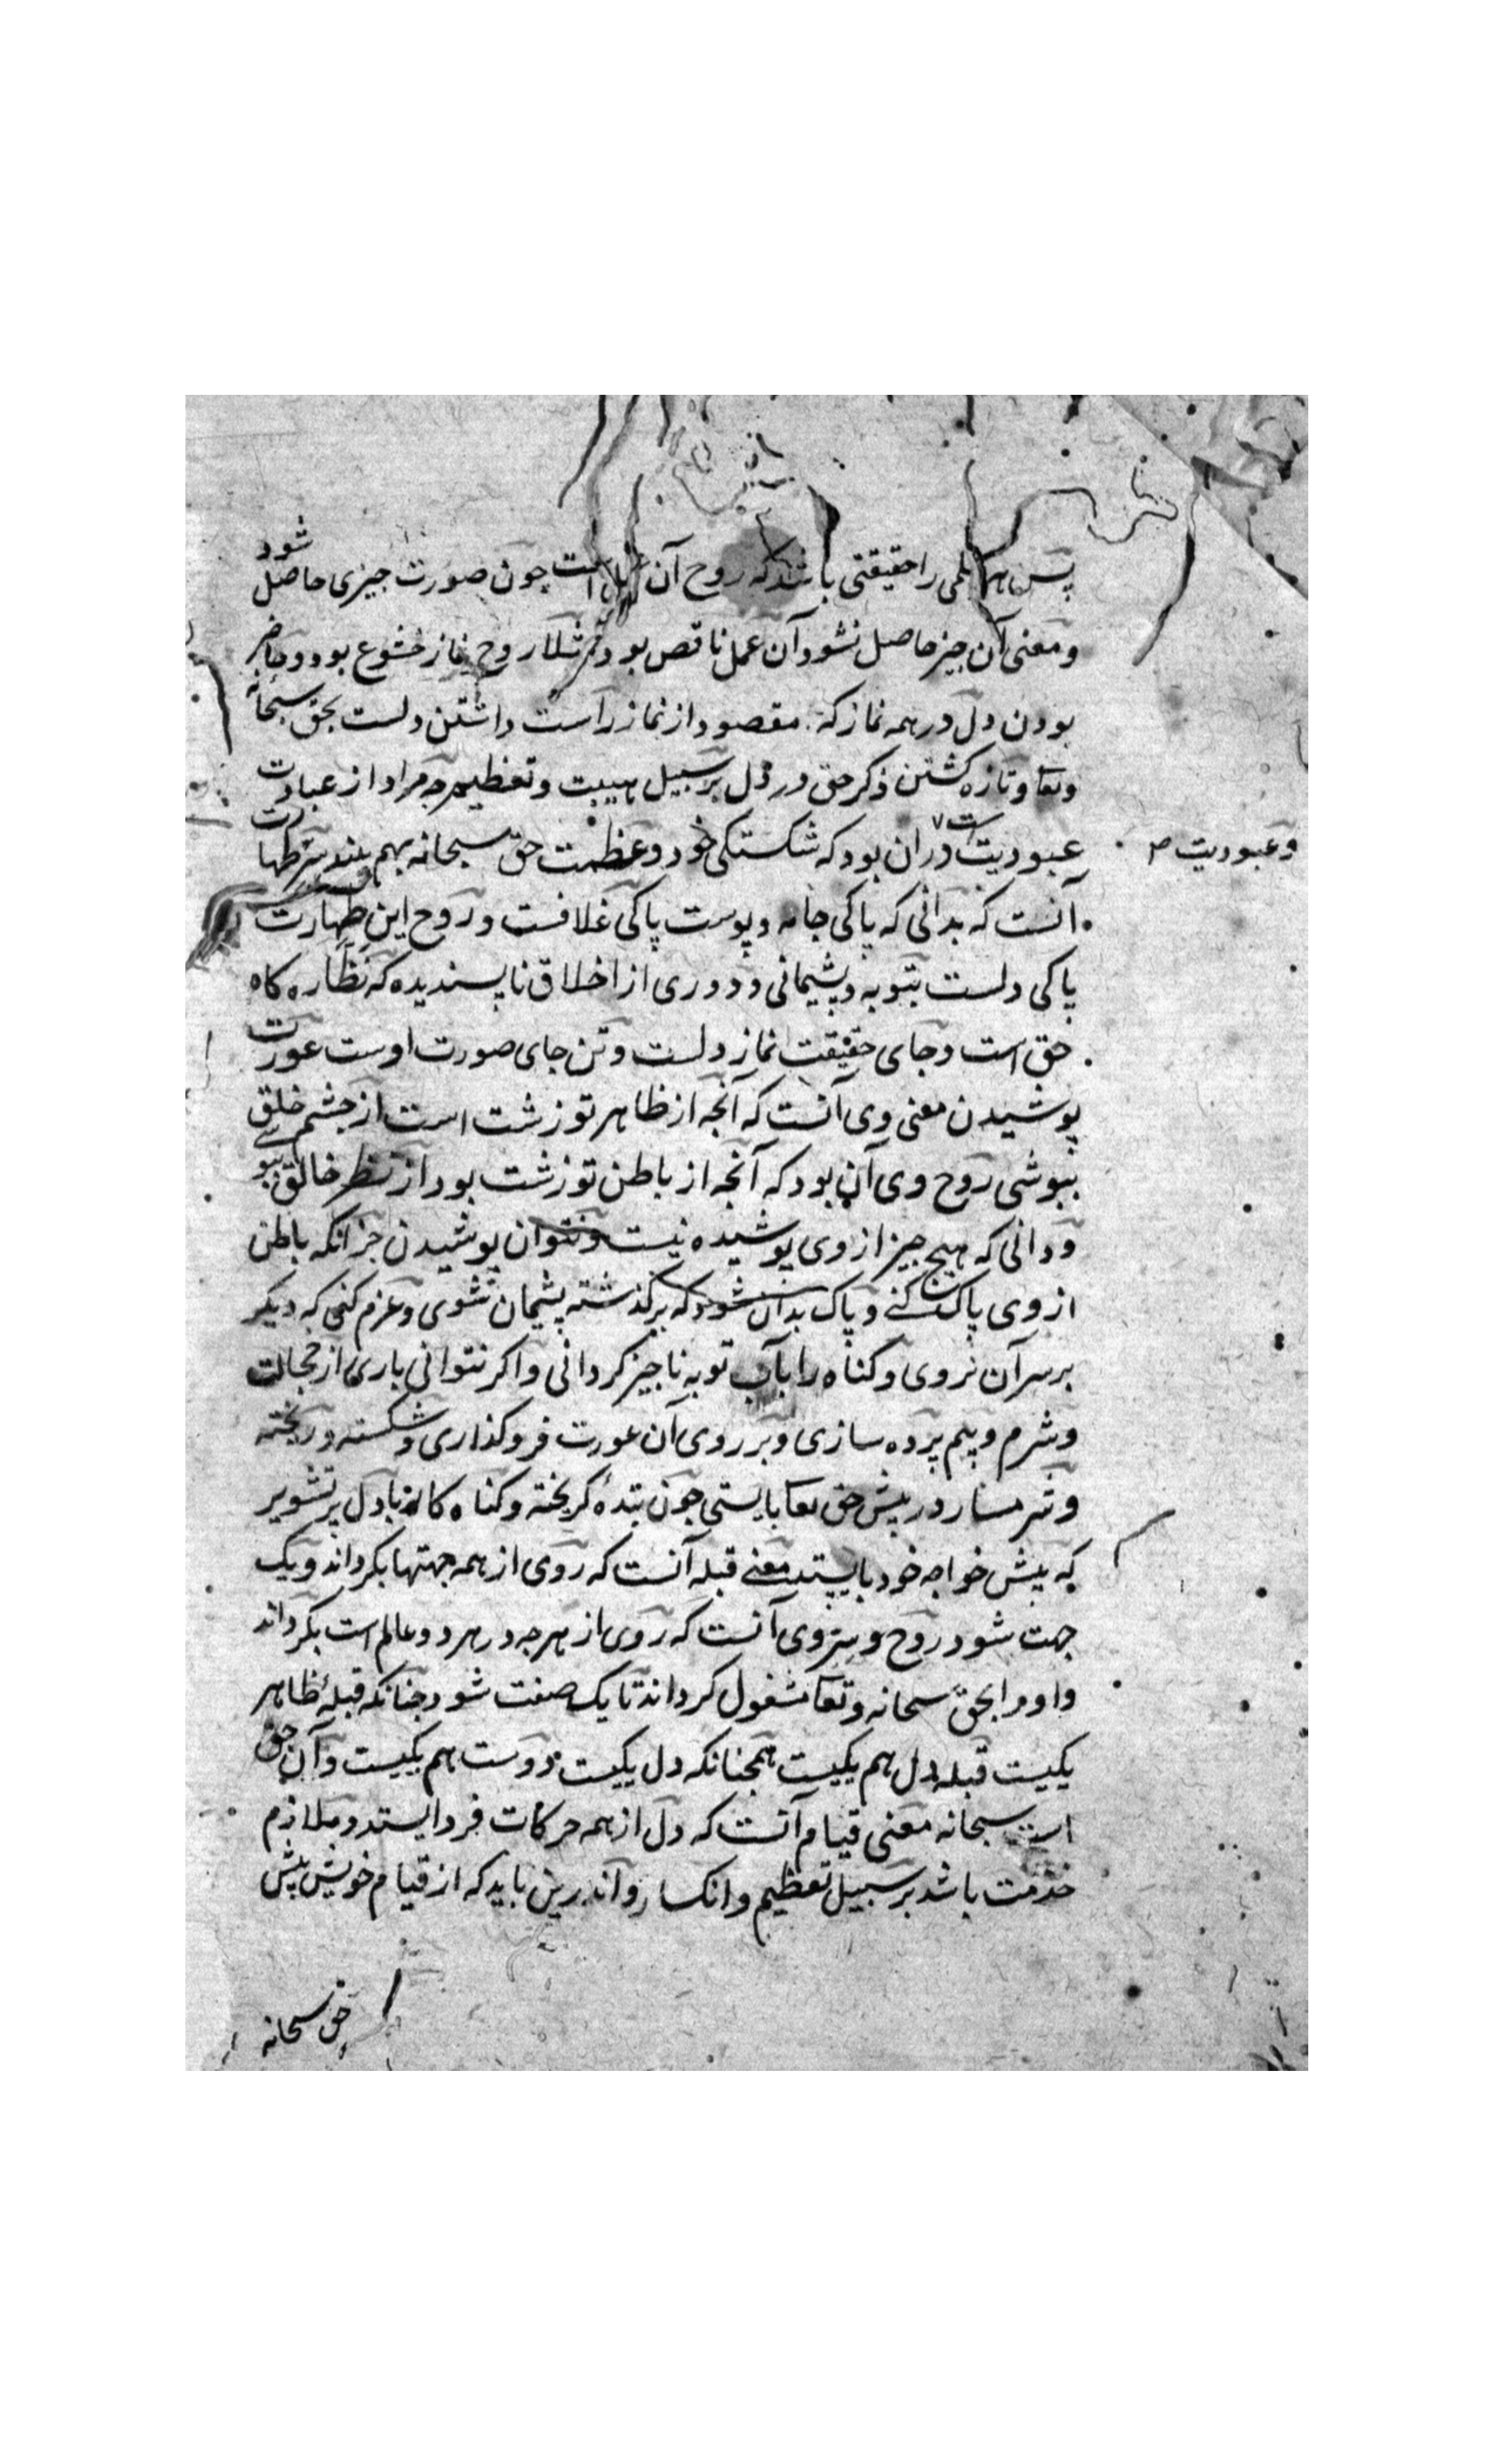 پس هر عملی را حقیقتی باشد که روح آن عمل است چون صورت چیزی حاصل شود
و معنی آن چیز حاصل نشود آن عمل ناقص بود مثلا روح نماز خشوع بود و حاضر
بودن دل در همه نماز که مقصود از نماز راست داشتن دلست بحق سبحانه
وتعا و تازه کشتن ذکر حق در دل بر سبیل هیبت و تعظیم چه مراد از عبادت
و عبودیت
عبودیت دران بود که شکستکی خود و عظمت حق سبحانه بهم بیند سر طهارت
آنست که بدانی که پاکی جامه و پوست پاکی غلافست و روح این طهارت
پاکی دلست بتوبه و پشیمانی و دوری از اخلاق ناپسندیده که نظاره کاه
حق است و جای حقیقت نماز دلست و تن جای صورت اوست عورت
پوشیدن معنی وی آنست که آنچه از ظاهر تو زشت است از چشم خلق
بپوشی روح وی آن بود که آنچه از باطن تو زشت بود از نظر خالق بپوشی
و دانی که هیچ چیز از وی پوشیده نیست و نتوان پوشیدن جز آنکه باطن
از وی پاک کنی و پاک بدان شود که بر کذشته پشیمان شوی و عزم کنی که دیکر
بر سر آن نروی و کناه را بآب توبه ناچیز کردانی و اکر نتوانی باری از خجالت
و شرم و بیم پرده سازی و بر روی آن عورت فرو کذاری و شکسته و ریخته
و شرمسار در پیش حق تعا بایستی چون بندهٔ کریخته و کناه کار با دل پر تشویر
که پیش خواجه خود بایستد معنی قبله آنست که روی از همه جهتها بکرداند و یک
جهت شود روح و سر وی آنست که روی از هرچه در هر دو عالم است بکرداند
و او را بحق سبحانه و تعا مشغول کرداند تا یک صفت شود چنانکه قبلهٔ ظاهر
یکیست قبله دل هم یکیست همچنانکه دل یکیست دوست هم یکیست و آن حق
است سبحانه معنی قیام آنست که دل از همه حرکات فرو ایستد و ملازم
خدمت باشد بر سبیل تعظیم و انکسار و اندرین باید که از قیام خویش پیش
حق سبحانه